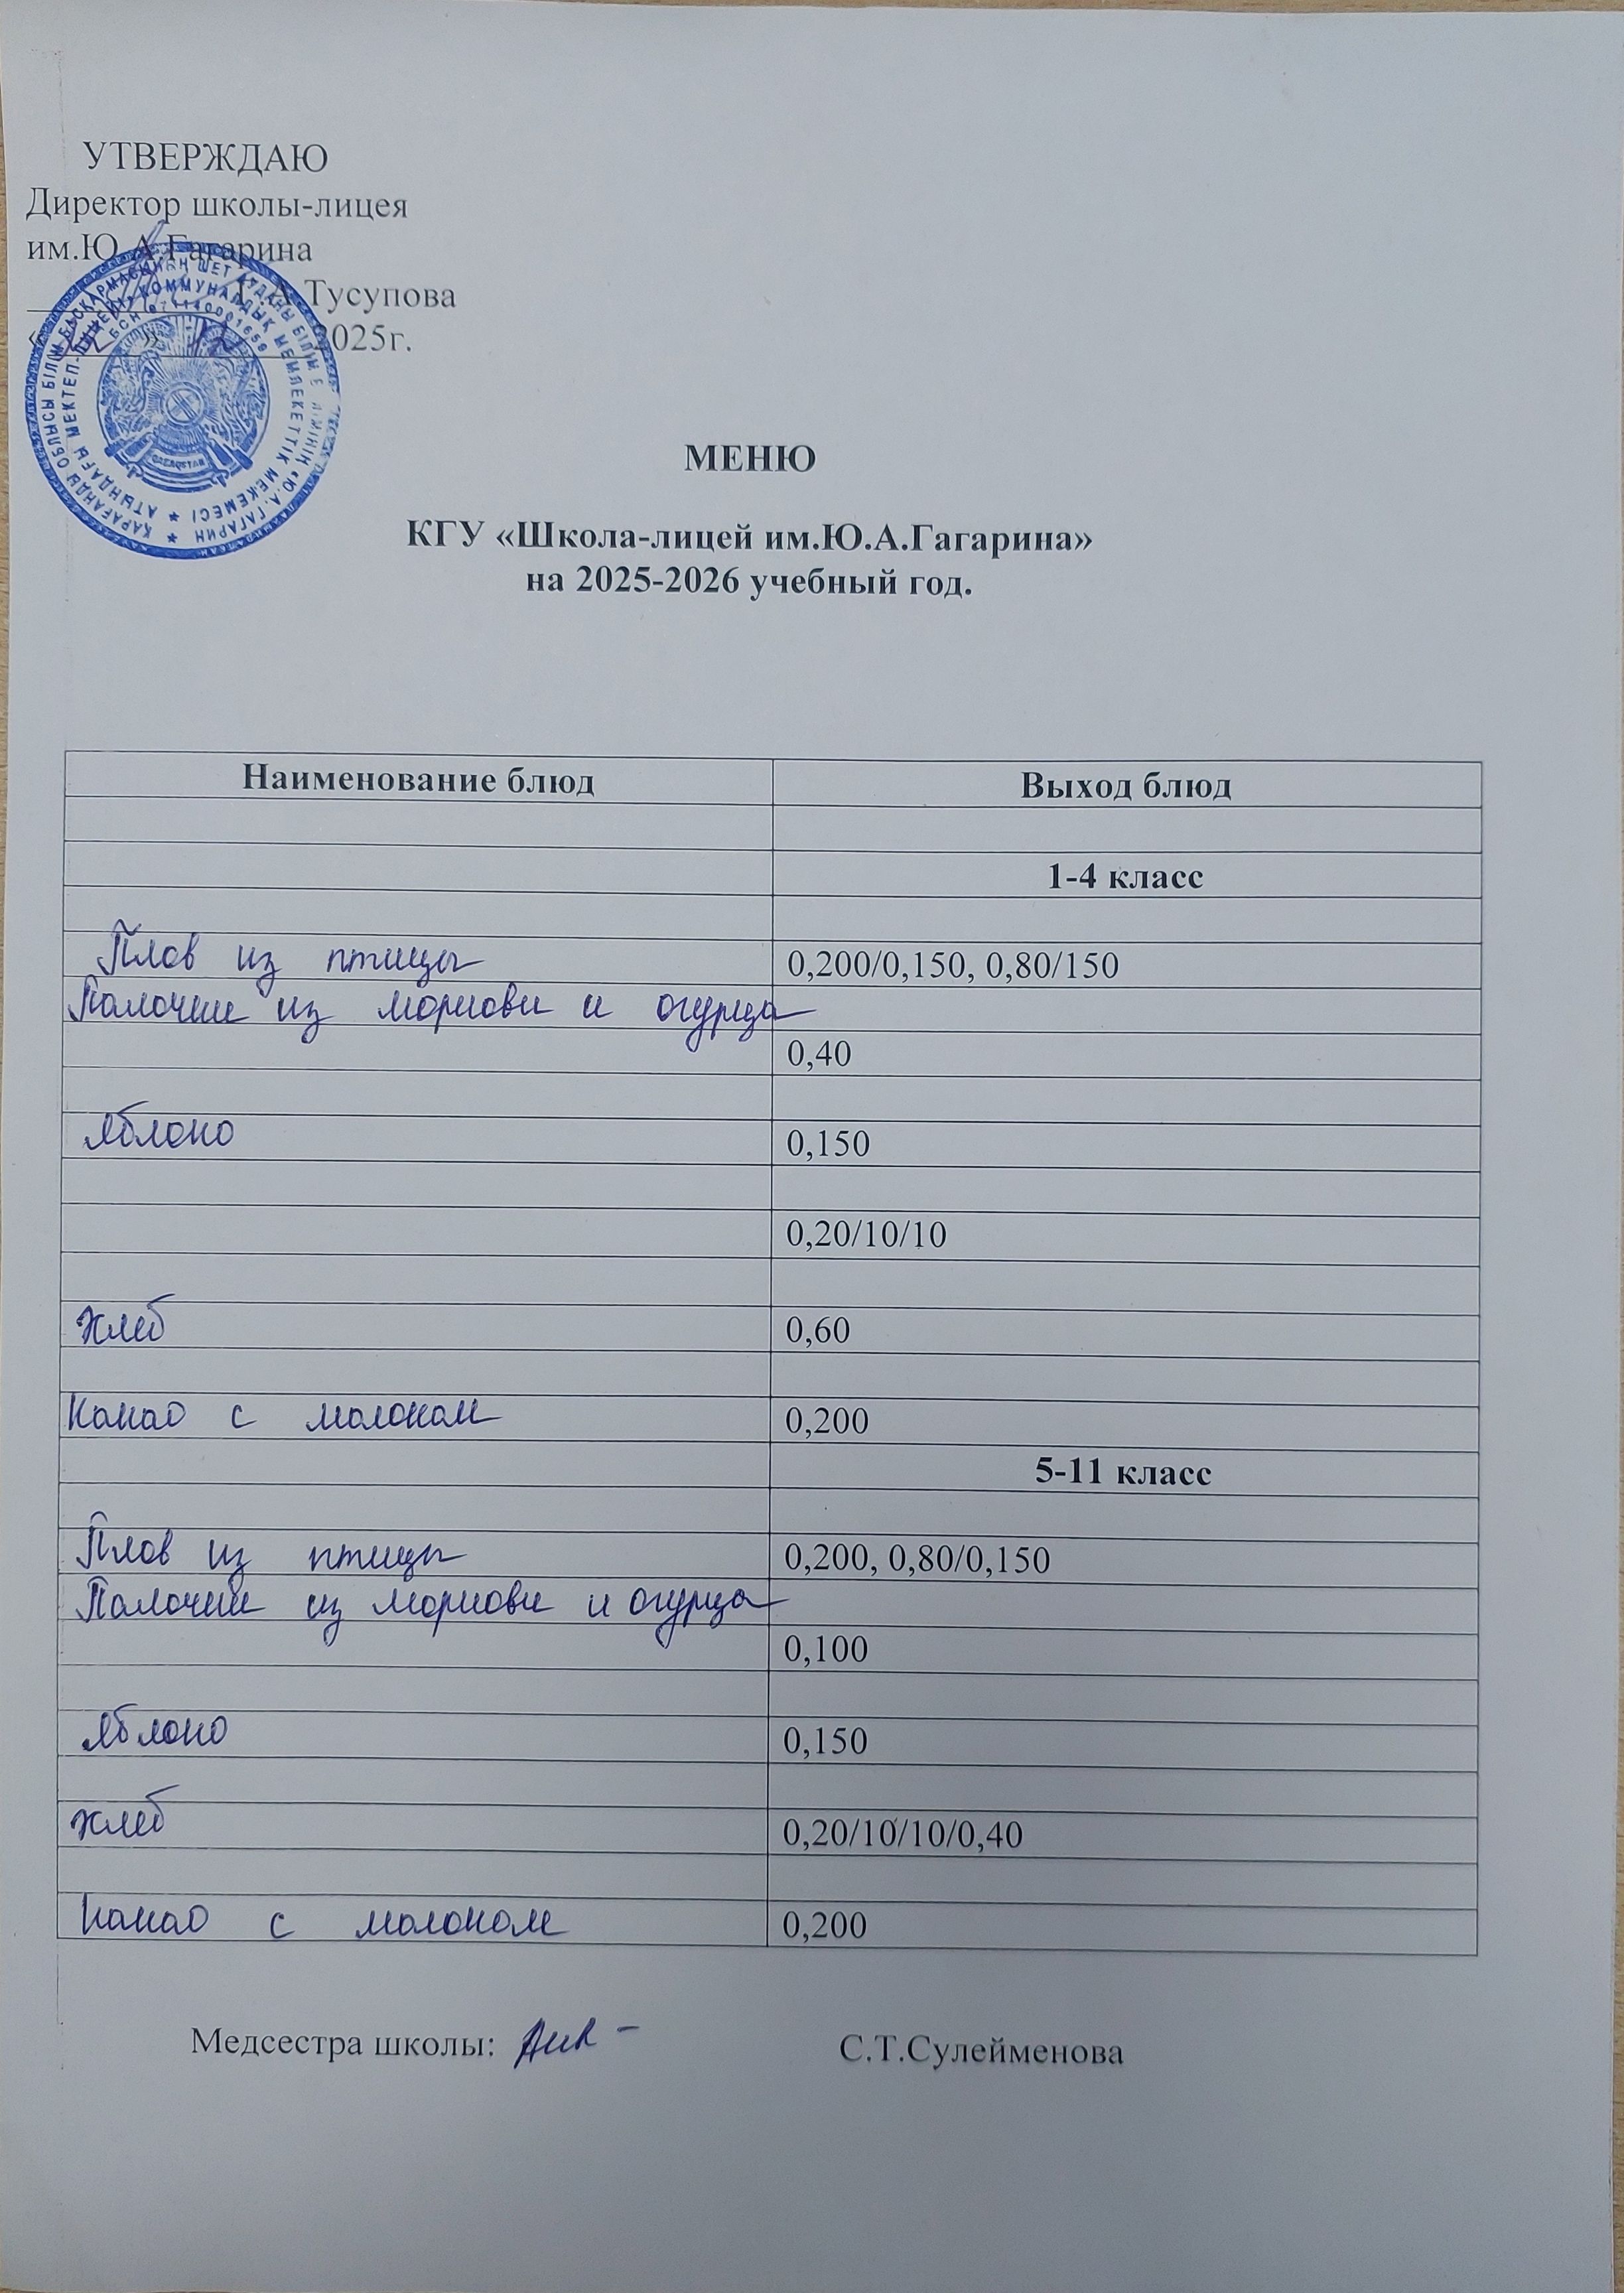 УТВЕРЖДАЮ
Директор школы-лицея
им.Ю.А.Гагарина
Г.А.Тусупова
2025г.
МЕНЮ
КГУ «Школа-лицей им.Ю.А.Гагарина»
на 2025-2026 учебный год.
Наименование блюд Выход блюд
1-4 класс
Плов из птицы 0,200/0,150, 0,80/150
Палочки из моркови и огурца
0,40
Яблоко 0,150
0,20/10/10
Хлеб 0,60
Какао с молоком 0,200
5-11 класс
Плов из птицы 0,200, 0,80/0,150
Палочки из моркови и огурца
0,100
Яблоко 0,150
Хлеб 0,20/10/10/0,40
Какао с молоком 0,200
Медсестра школы: С.Т.Сулейменова